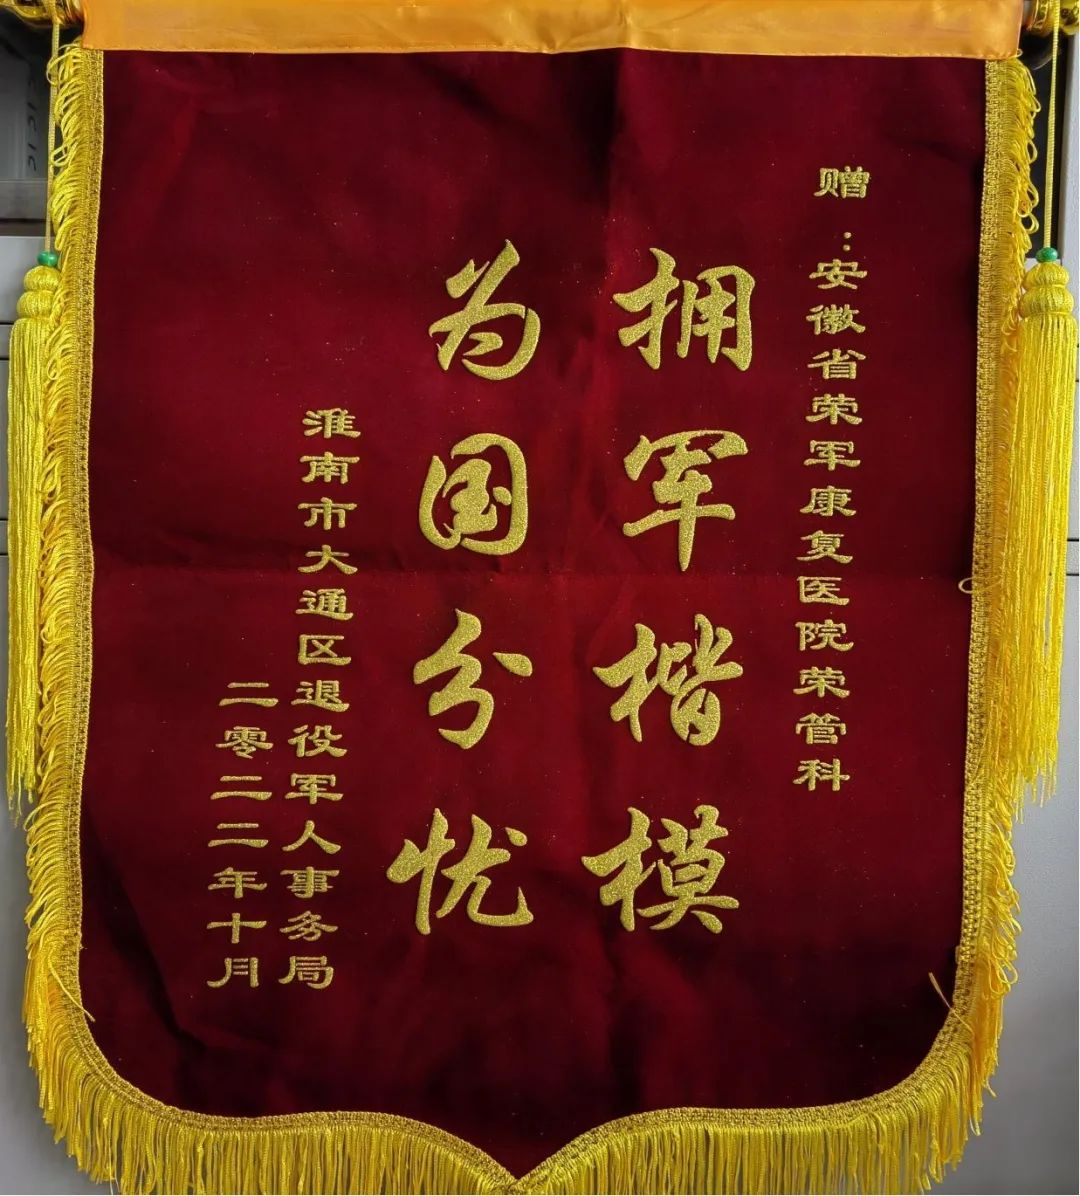 赠:安徽省荣军康复医院荣管科
拥军楷模
为国分忧
淮南市大通区退役军人事务局
二零二二年十月